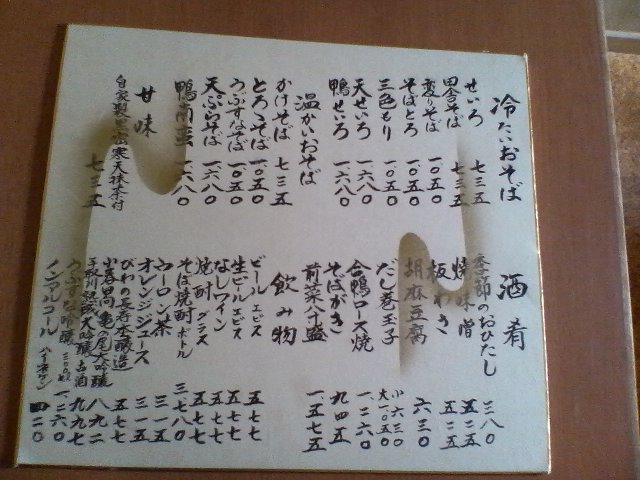 冷たいおそば
せいろ 七三五
田舎そば 七三五
変りそば 一〇五〇
そばとろ 一〇五〇
三色もり 一〇五〇
天せいろ 一六八〇
鴨せいろ 一六八〇
温かいおそば
かけそば 七三五
とろろそば 一〇五〇
うぶすなそば 一〇五〇
天ぷらそば 一六八〇
鴨南蛮 一六八〇
甘味
自家製 寒天抹茶付 七三五
酒肴
季節のおひたし 三八〇
焼味噌 五二五
板わさ 五二五
胡麻豆腐 六三〇
だし巻玉子 小六三〇 大一〇五〇
合鴨ロース焼 一、二六〇
そばがき 九四五
前菜八寸盛 一、五七五
飲み物
ビール ヱビス 五七七
生ビール ヱビス 五七七
なしワイン 五七七
焼酎 グラス 五七七
そば焼酎 ボトル 三、七八〇
ウーロン茶 三一五
オレンジジュース 三一五
びわの長寿本醸造 五七七
小春日向 亀の尾大吟醸 八九二
大吟醸古酒 九九七
うぶすな吟醸 三〇〇ml 一、二六〇
ノンアルコール 四二〇